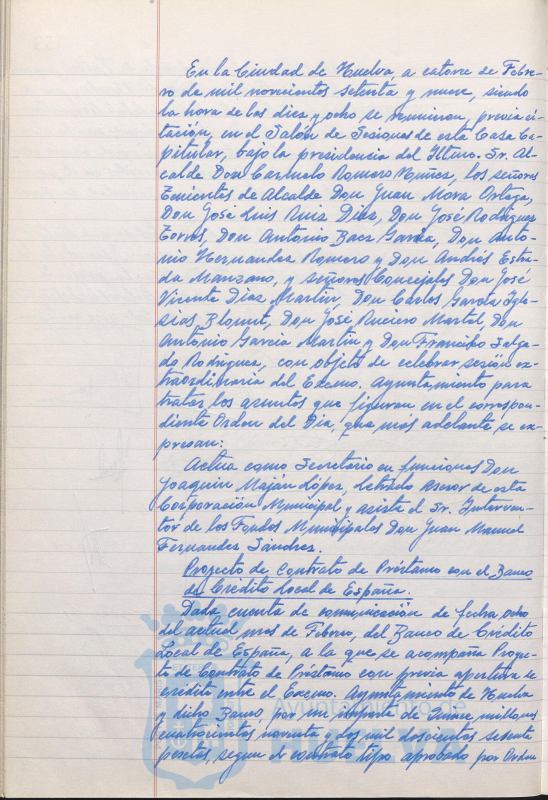 En la Ciudad de Huelva, a catorce de Febre-
ro de mil novecientos setenta y nueve, siendo
la hora de las diez y ocho se reunieron, previa ci-
tación, en el Salón de Sesiones de esta Casa Ca-
pitular, bajo la presidencia del Iltmo. Sr. Al-
calde Don Carmelo Romero Núñez, los señores
Tenientes de Alcalde Don Juan Mora Ortega,
Don José Luis Ruiz Díaz, Don José Rodríguez
Torres, Don Antonio Baez García, Don Anto-
nio Hernandez Romero y Don Andrés Estra-
da Manzano, y señores Concejales Don José
Vicente Díaz Martín, Don Carlos García Igle-
sias, Don José Ruciero Martel, Don
Antonio García Martín y Don Francisco Salga-
do Rodríguez, con objeto de celebrar sesión ex-
traordinaria del Excmo. Ayuntamiento para
tratar los asuntos que figuran en el correspon-
diente Orden del Día, que más adelante se ex-
presan:
Actua como Secretario en funciones Don
Joaquín López, Letrado Asesor de esta
Corporación Municipal y asiste el Sr. Interven-
tor de los Fondos Municipales Don Juan Manuel
Fernandez Sández.
Proyecto de Contrato de Préstamo con el Banco
de Crédito Local de España.
Dada cuenta de comunicación de fecha ocho
del actual mes de Febrero, del Banco de Crédito
Local de España, a la que se acompaña Proyec-
to de Contrato de Préstamo con previa apertura de
crédito entre el Excmo. Ayuntamiento de Huelva
y dicho Banco, por un importe de millones
cuatrocientas noventa y dos mil doscientas setenta
pesetas, segun el contrato tipo aprobado por Orden
Ayuntamiento de